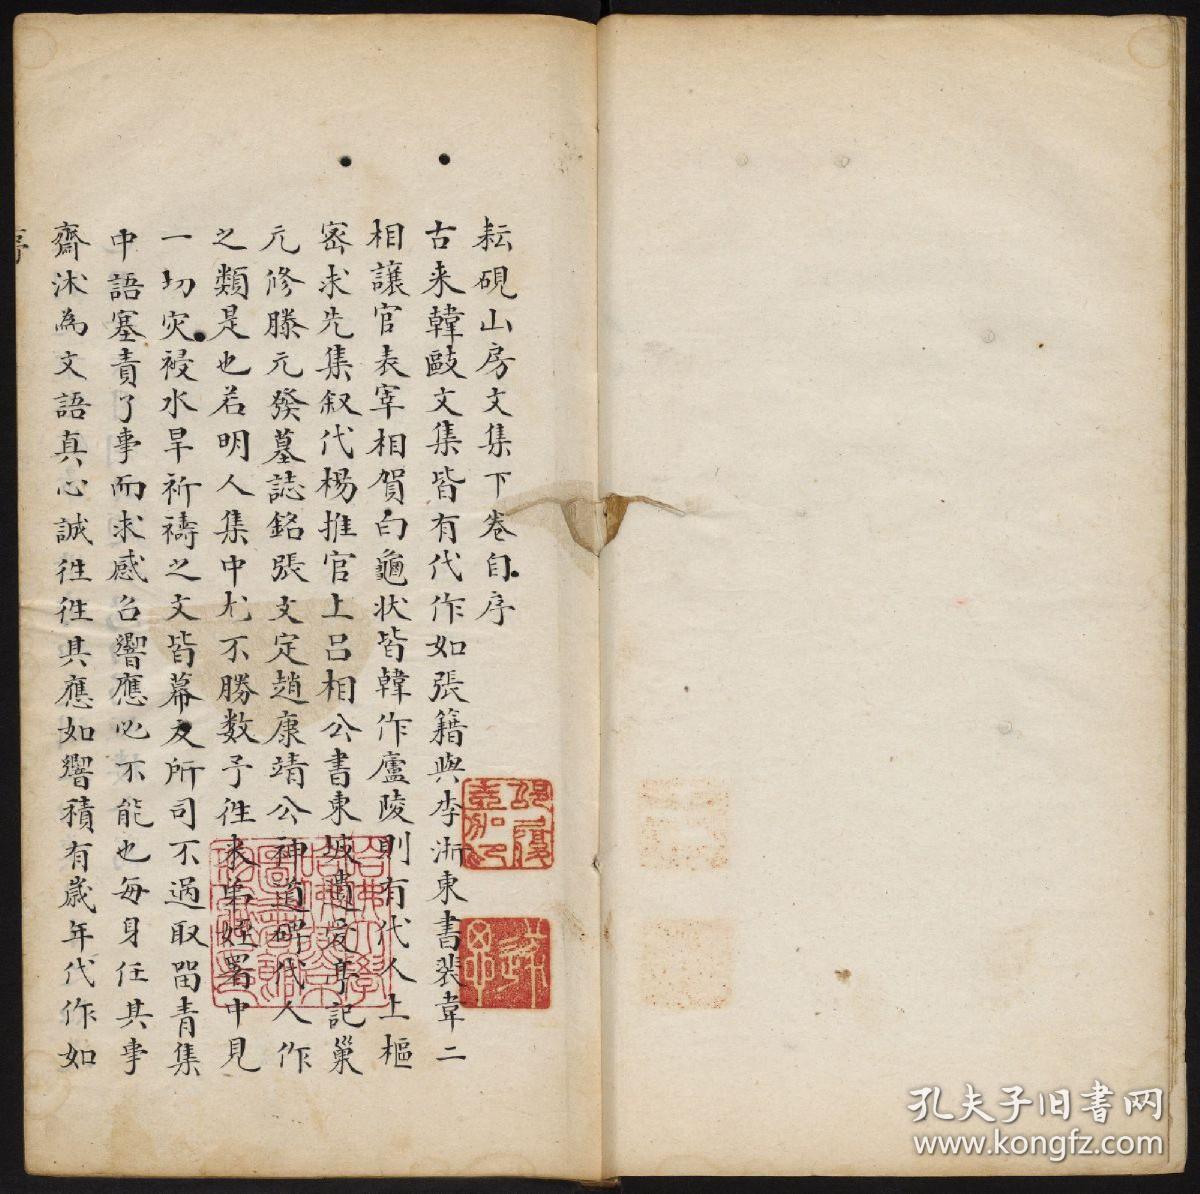 耘硯山房文集下卷自序
古来韓歐文集皆有代作如張籍與李浙東書裴韋二
相讓官表宰相賀白龜状皆韓作廬陵則有代人上樞
宻求先集叙代楊推官上吕相公書東坡遺愛亭記巢
元修滕元發墓誌銘張文定趙康靖公神道碑代人作
之類是也若明人集中尤不勝数予徃来弟姪署中見
一切灾祲水旱祈禱之文皆幕友所司不過取留青集
中語塞責了事而求感召響應必不能也每身任其事
齋沐為文語真心誠徃徃其應如響積有歲年代作如
序
孔夫子旧書网
www.kongfz.com